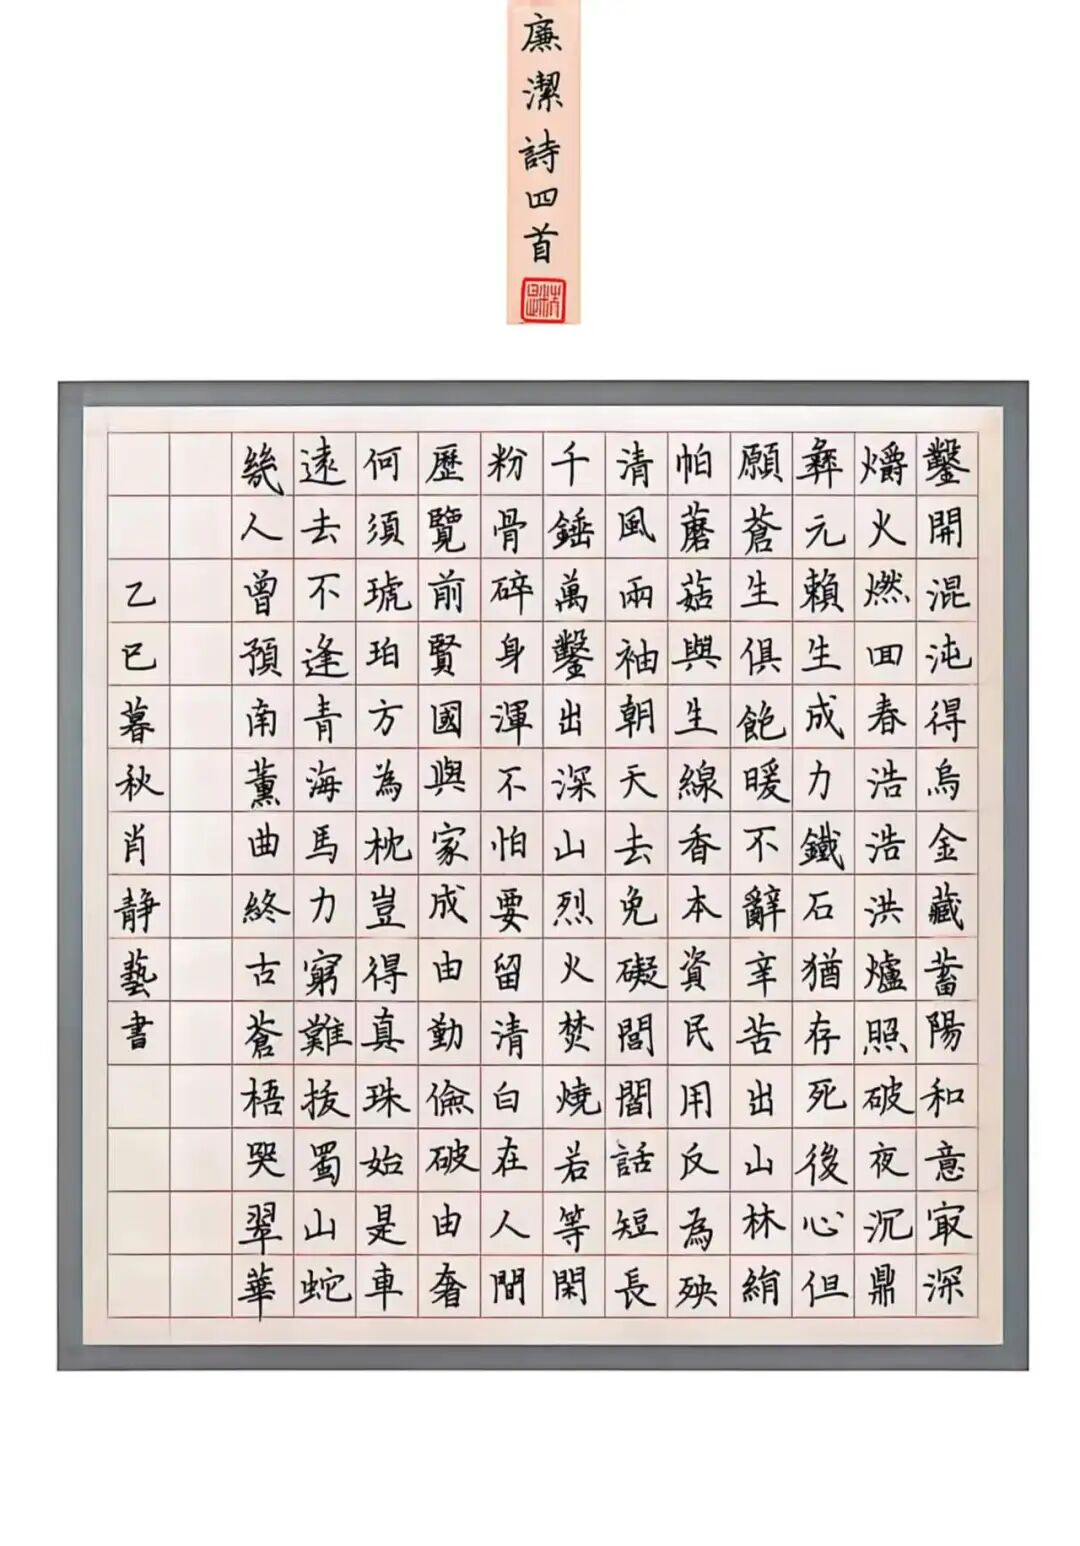 廉潔詩四首
鑿開混沌得烏金藏蓄陽和意㝡深
爝火燃囬春浩浩洪爐照破夜沉鼎
彝元賴生成力鐵石猶存死後心但
願蒼生俱飽暖不辭辛苦出山林絹
帕蘑菇與生線香本資民用反為殃
清風兩袖朝天去免礙閭閻話短長
千錘萬鑿出深山烈火焚燒若等閑
粉骨碎身渾不怕要留清白在人間
歷覽前賢國與家成由勤儉破由奢
何須琥珀方為枕豈得真珠始是車
遠去不逢青海馬力窮難拔蜀山蛇
幾人曾預南薰曲終古蒼梧哭翠華
乙巳暮秋肖靜藝書